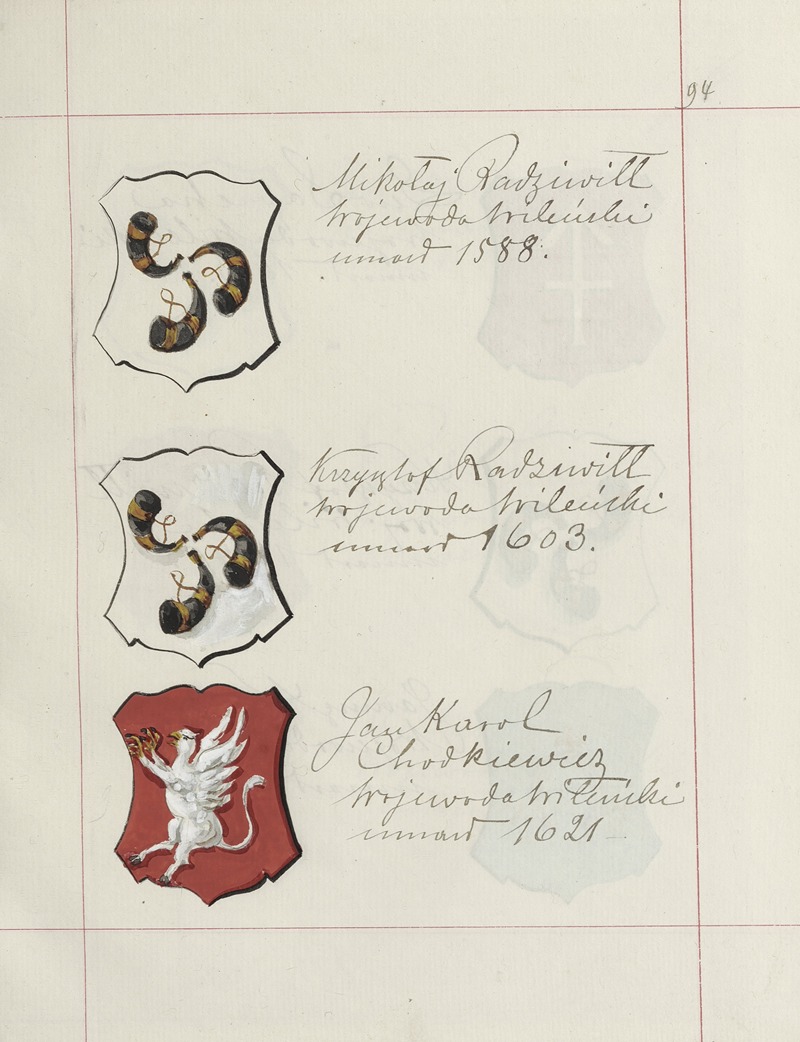 94
Mikołaj Radziwiłł
wojewoda wileński
umarł 1588.
Krzysztof Radziwiłł
wojewoda wileński
umarł 1603.
Jan Karol
Chodkiewicz
wojewoda wileński
umarł 1621